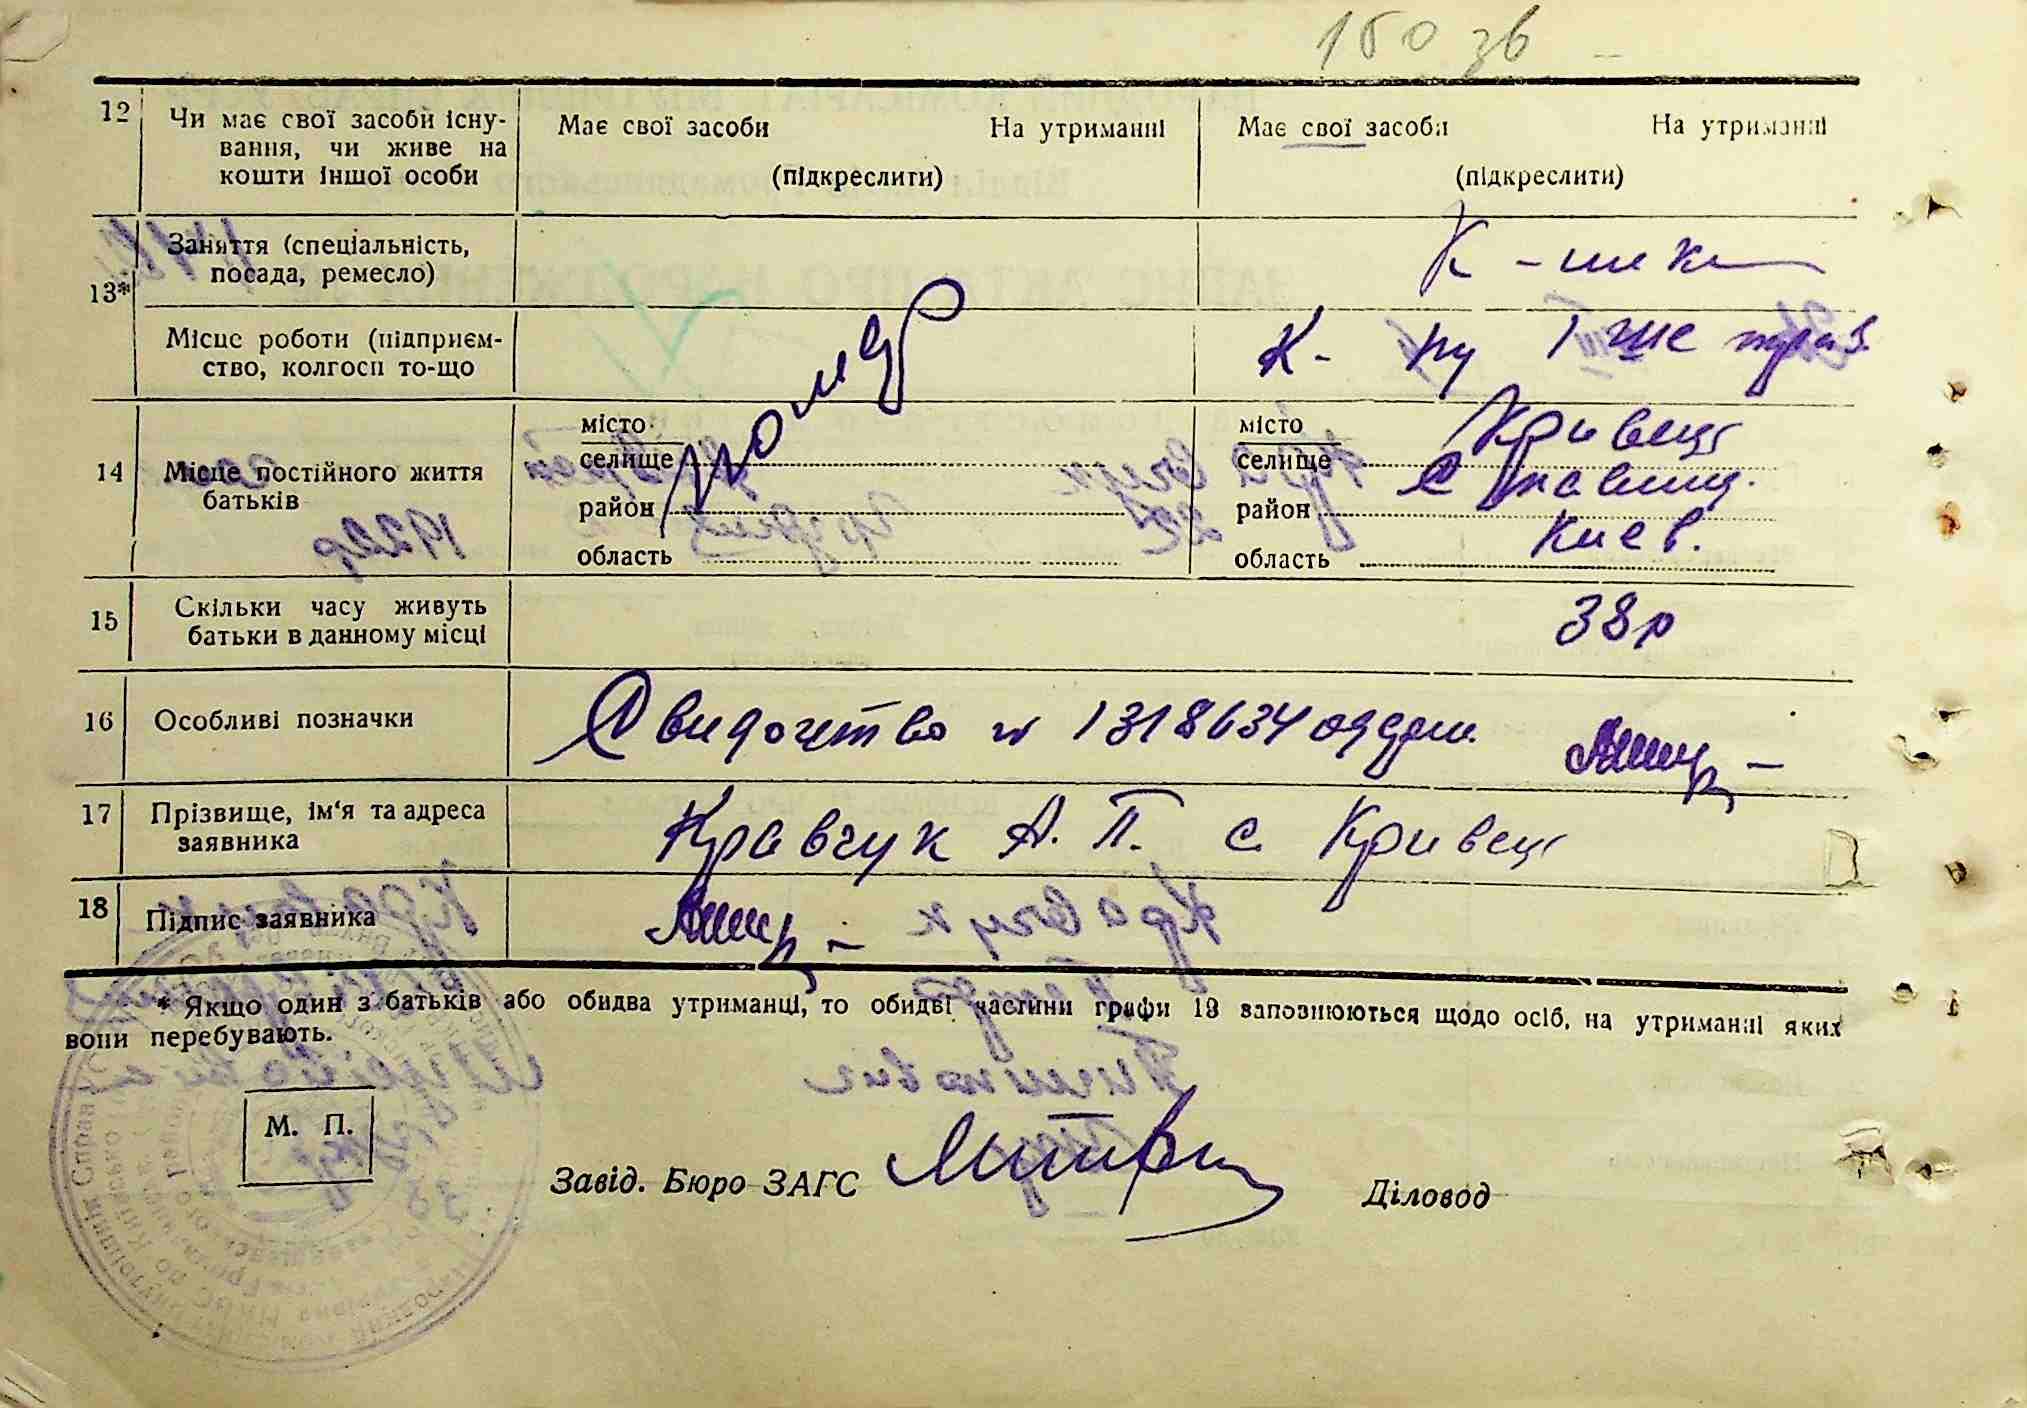 150 зв
12 Чи має свої засоби існу-
вання, чи живе на
кошти іншої особи
Має свої засоби На утриманні
(підкреслити)
Має свої засоби На утриманні
(підкреслити)
13* Заняття (спеціальність,
посада, ремесло)
К-
Місце роботи (підприєм-
ство, колгосп то-що
помер
К-
14 Місце постійного життя
батьків
місто
селище
район
область
місто
селище Кривец
район Ставищ.
область Киев.
15 Скільки часу живуть
батьки в данному місці
38р
16 Особливі позначки
Свидочство № 1318634
17 Прізвище, ім'я та адреса
заявника
Кравчук А. П. с. Кривец
18 Підпис заявника
* Якщо один з батьків або обидва утриманці, то обидві частини графи 13 заповнюються щодо осіб, на утриманні яких
вони перебувають.
М. П.
Завід. Бюро ЗАГС
Діловод